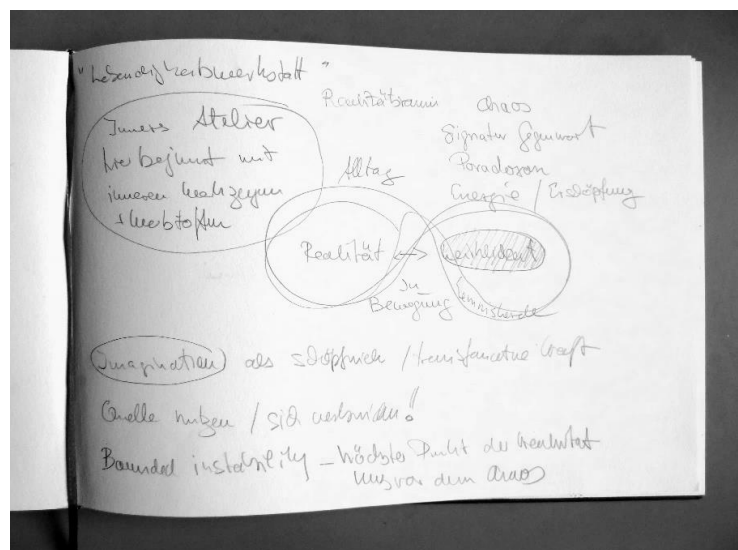 "Lebendigkeitswerkstatt"
Inneres Atelier
hier beginnt mit
inneren Werkzeugen
+ Werkstoffen
Realitätsraum
Chaos
Signatur Gegenwart
Paradoxon
Energie / Erschöpfung
Alltag
Realität ↔
In
Bewegung
Imagination als schöpferisch / transformative Kraft
Quelle nutzen / sich verbinden!
Bounded instability – höchster Punkt der Kreativität
kurz vor dem Chaos